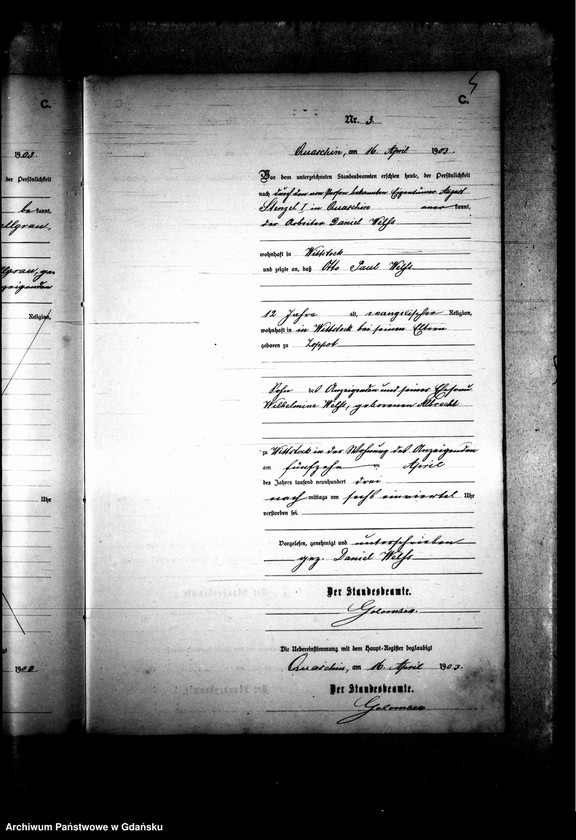 C.
1903.
der Persönlichkeit
be kannt,
Religion,
Uhr
1902
C.
Nr. 3.
Quaschin, am 16. April 1903.
Vor dem unterzeichneten Standesbeamten erschien heute, der Persönlichkeit
nach durch den von Person bekannten Eigentümer August
Stenzel I in Quaschin kannt,
der Arbeiter Daniel Welfs
wohnhaft in Wittstock
und zeigte an, daß Otto Paul Welfs
12 Jahre alt, evangelischer Religion,
wohnhaft in Wittstock bei seinen Eltern
geboren zu Zoppot
Sohn des Anzeigenden und seiner Ehefrau
Wilhelmine Welfs, geborenen Albrecht
zu Wittstock in der Wohnung des Anzeigenden
am fünfzehn ten April
des Jahres tausend neunhundert drei
nach mittags um sechs einviertel Uhr
verstorben sei.
Vorgelesen, genehmigt und unterschrieben
gez. Daniel Welfs
Der Standesbeamte.
Die Uebereinstimmung mit dem Haupt-Register beglaubigt
Quaschin, am 16. April 1903.
Der Standesbeamte.
Archiwum Państwowe w Gdańsku